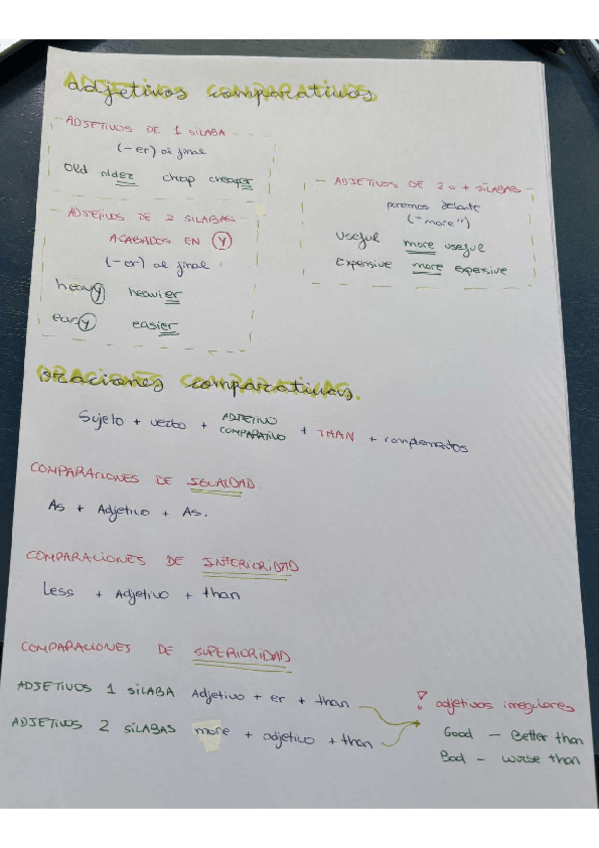 adjetivos comparativos
ADJETIVOS DE 1 SILABA
(-er) al final
Old older cheap cheaper
ADJETIVOS DE 2 SILABAS
ACABADOS EN Y
(-er) al final
heavy heavier
easy easier
ADJETIVOS DE 2 o + SÍLABAS
ponemos delante
("more")
Useful more useful
Expensive more expensive
Oraciones comparativas.
Sujeto + verbo + ADJETIVO COMPARATIVO + THAN + complementos
COMPARACIONES DE IGUALDAD
As + Adjetivo + As.
COMPARACIONES DE INFERIORIDAD
Less + Adjetivo + than
COMPARACIONES DE SUPERIORIDAD
ADJETIVOS 1 SÍLABA Adjetivo + er + than
ADJETIVOS 2 SÍLABAS more + adjetivo + than
! adjetivos irregulares
Good - Better than
Bad - worse than